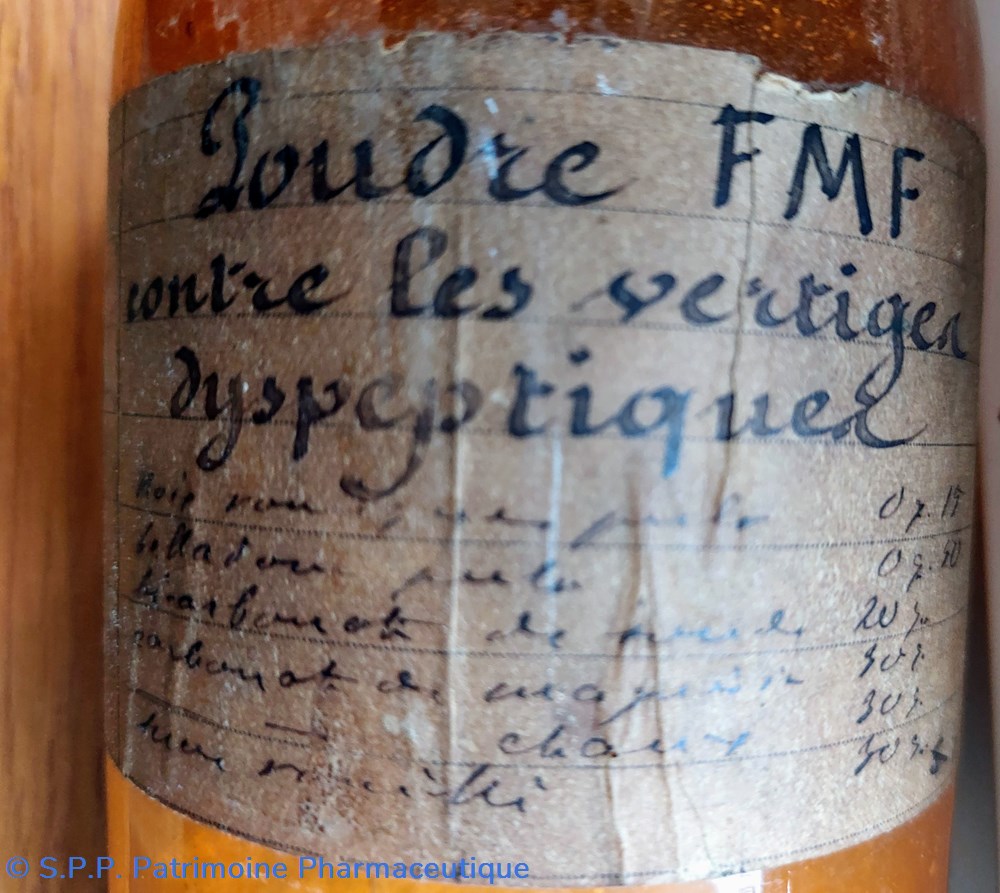 Poudre FMF
contre les vertiges
dyspeptiques
Noix vomiques pulv 0g.15
belladone pulv 0g.20
bicarbonate de soude 20g
carbonate de magnésie 30g
— chaux 30g
30g
© S.P.P. Patrimoine Pharmaceutique